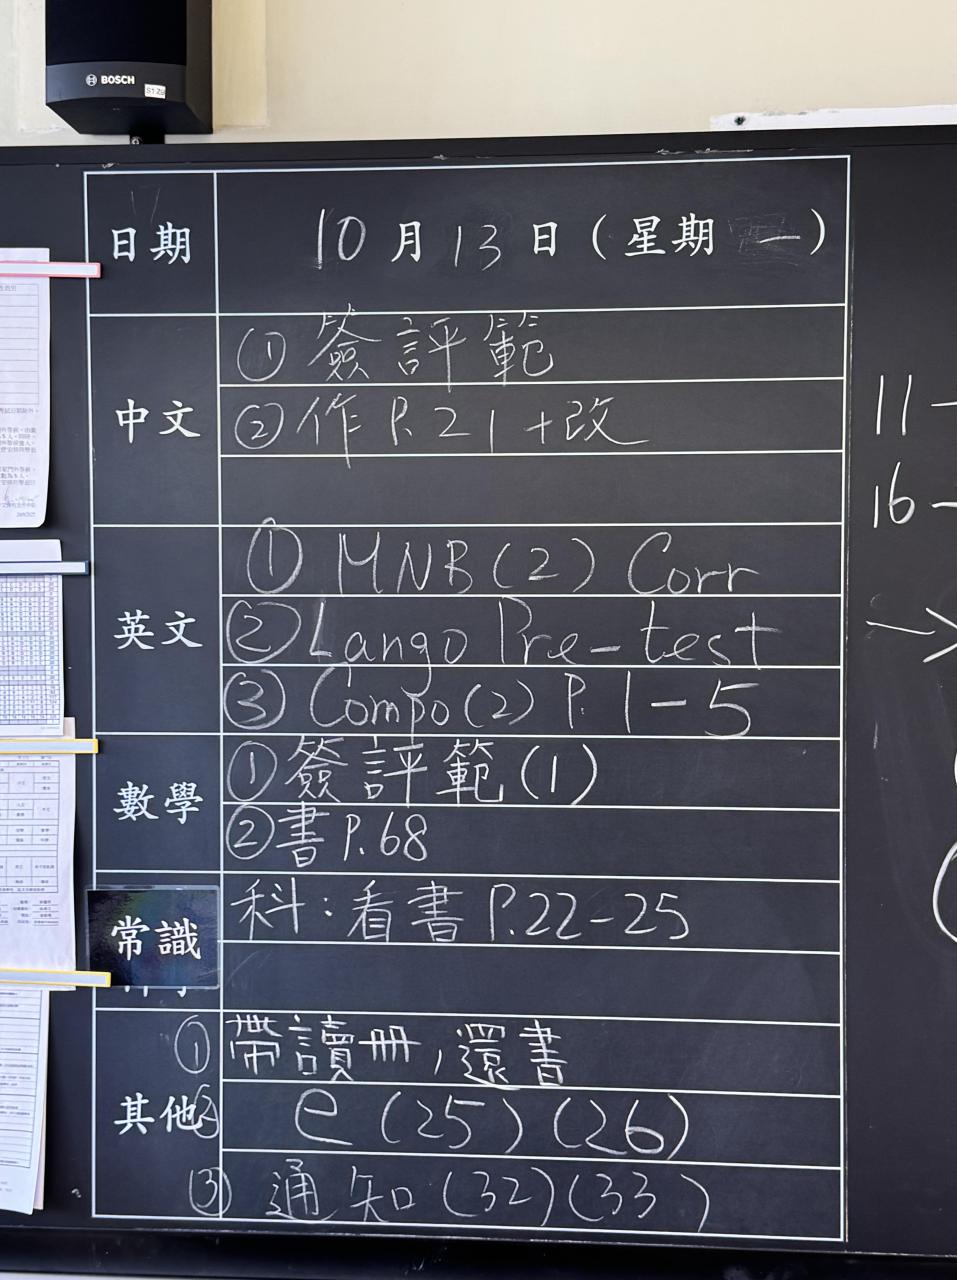 BOSCH
日期 10月13日(星期一)
中文 ① 簽評範
② 作 P.21+改
英文 ① MNB(2) Corr
② Lango Pre-test
③ Compo(2) P.1-5
數學 ① 簽評範(1)
② 書 P.68
常識 科:看書 P.22-25
其他 ① 帶讀冊,還書
② e (25)(26)
③ 通知(32)(33)
11-
16-